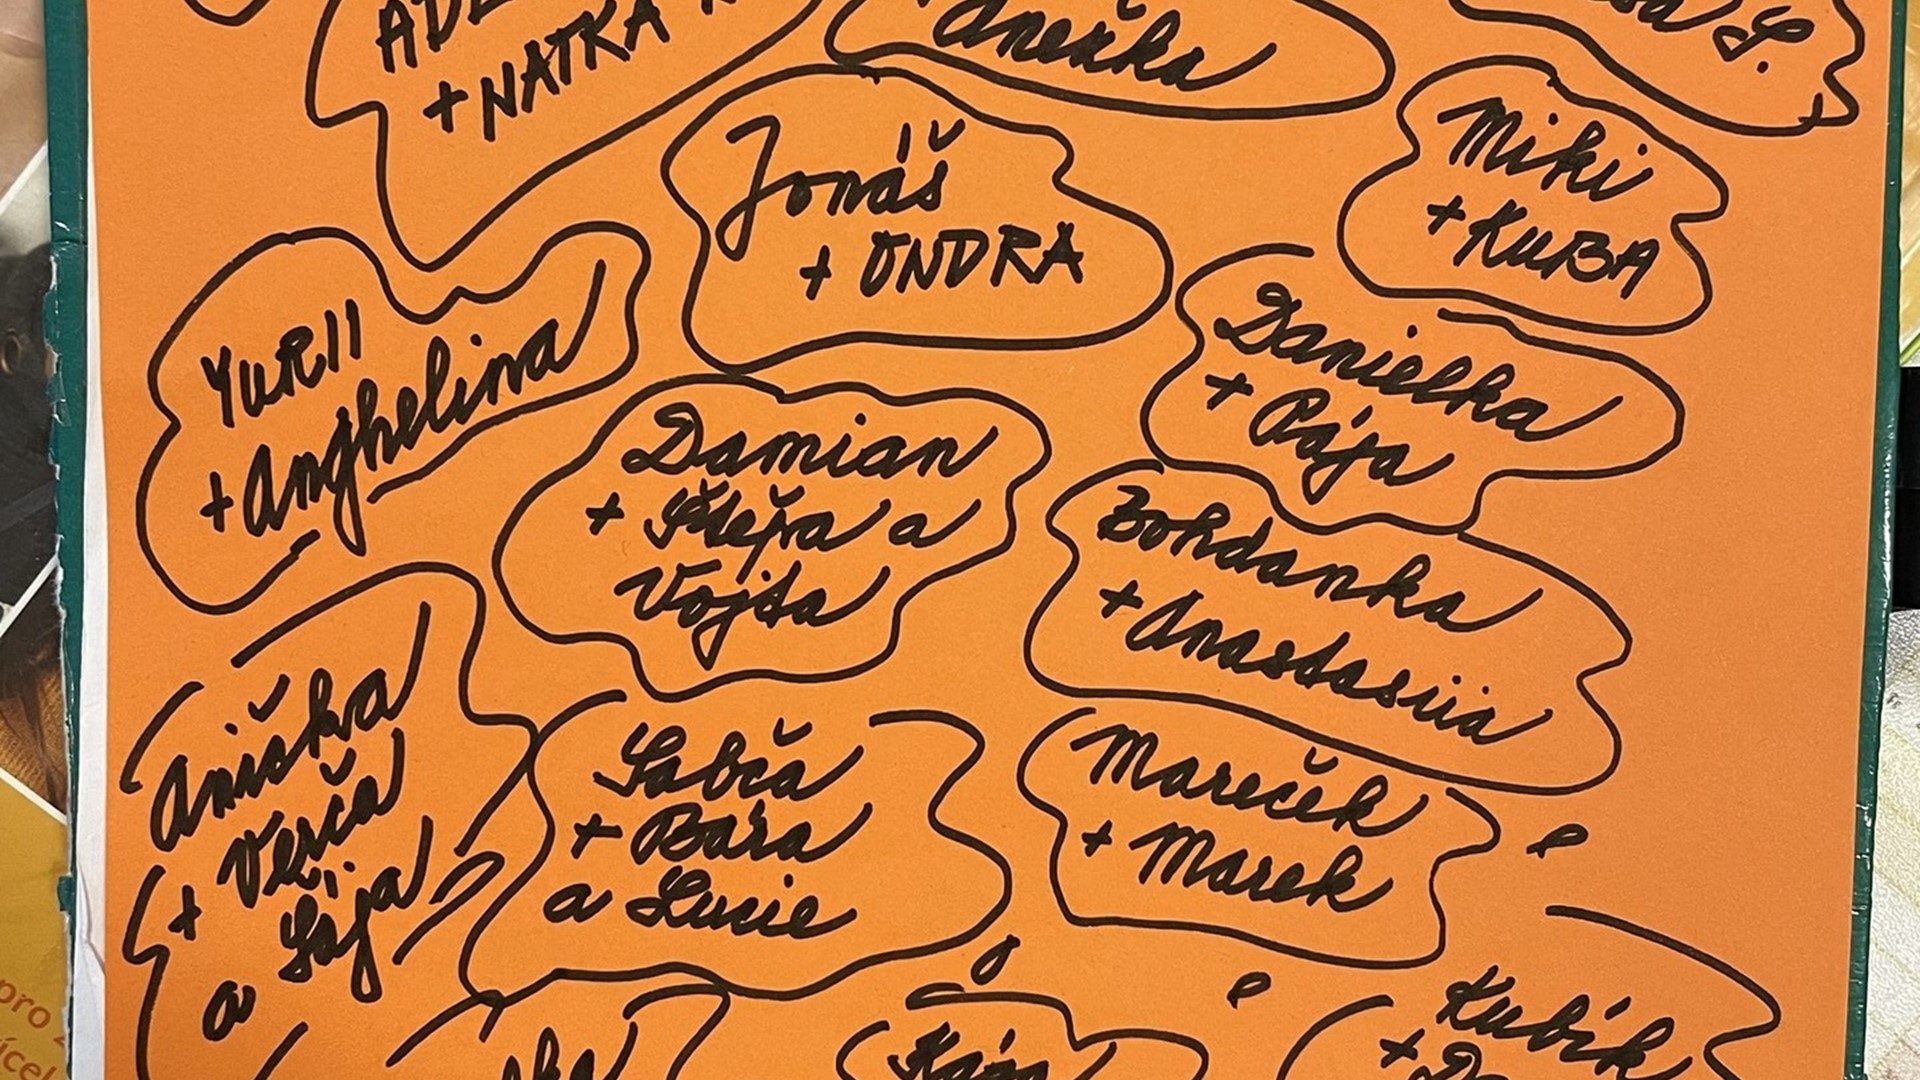 + NATKA
Anežka
Jonáš
+ ONDRA
Miki
+ KUBA
YURII
+ Anghelina
Danielka
+ Pája
Damian
+ Štěpa a
Vojta
Bohdanka
+ Anastasiia
Anička
+ Verča
a Sája
Sabča
+ Bára
a Lucie
Mareček
+ Marek
Kája
Kubík
pro